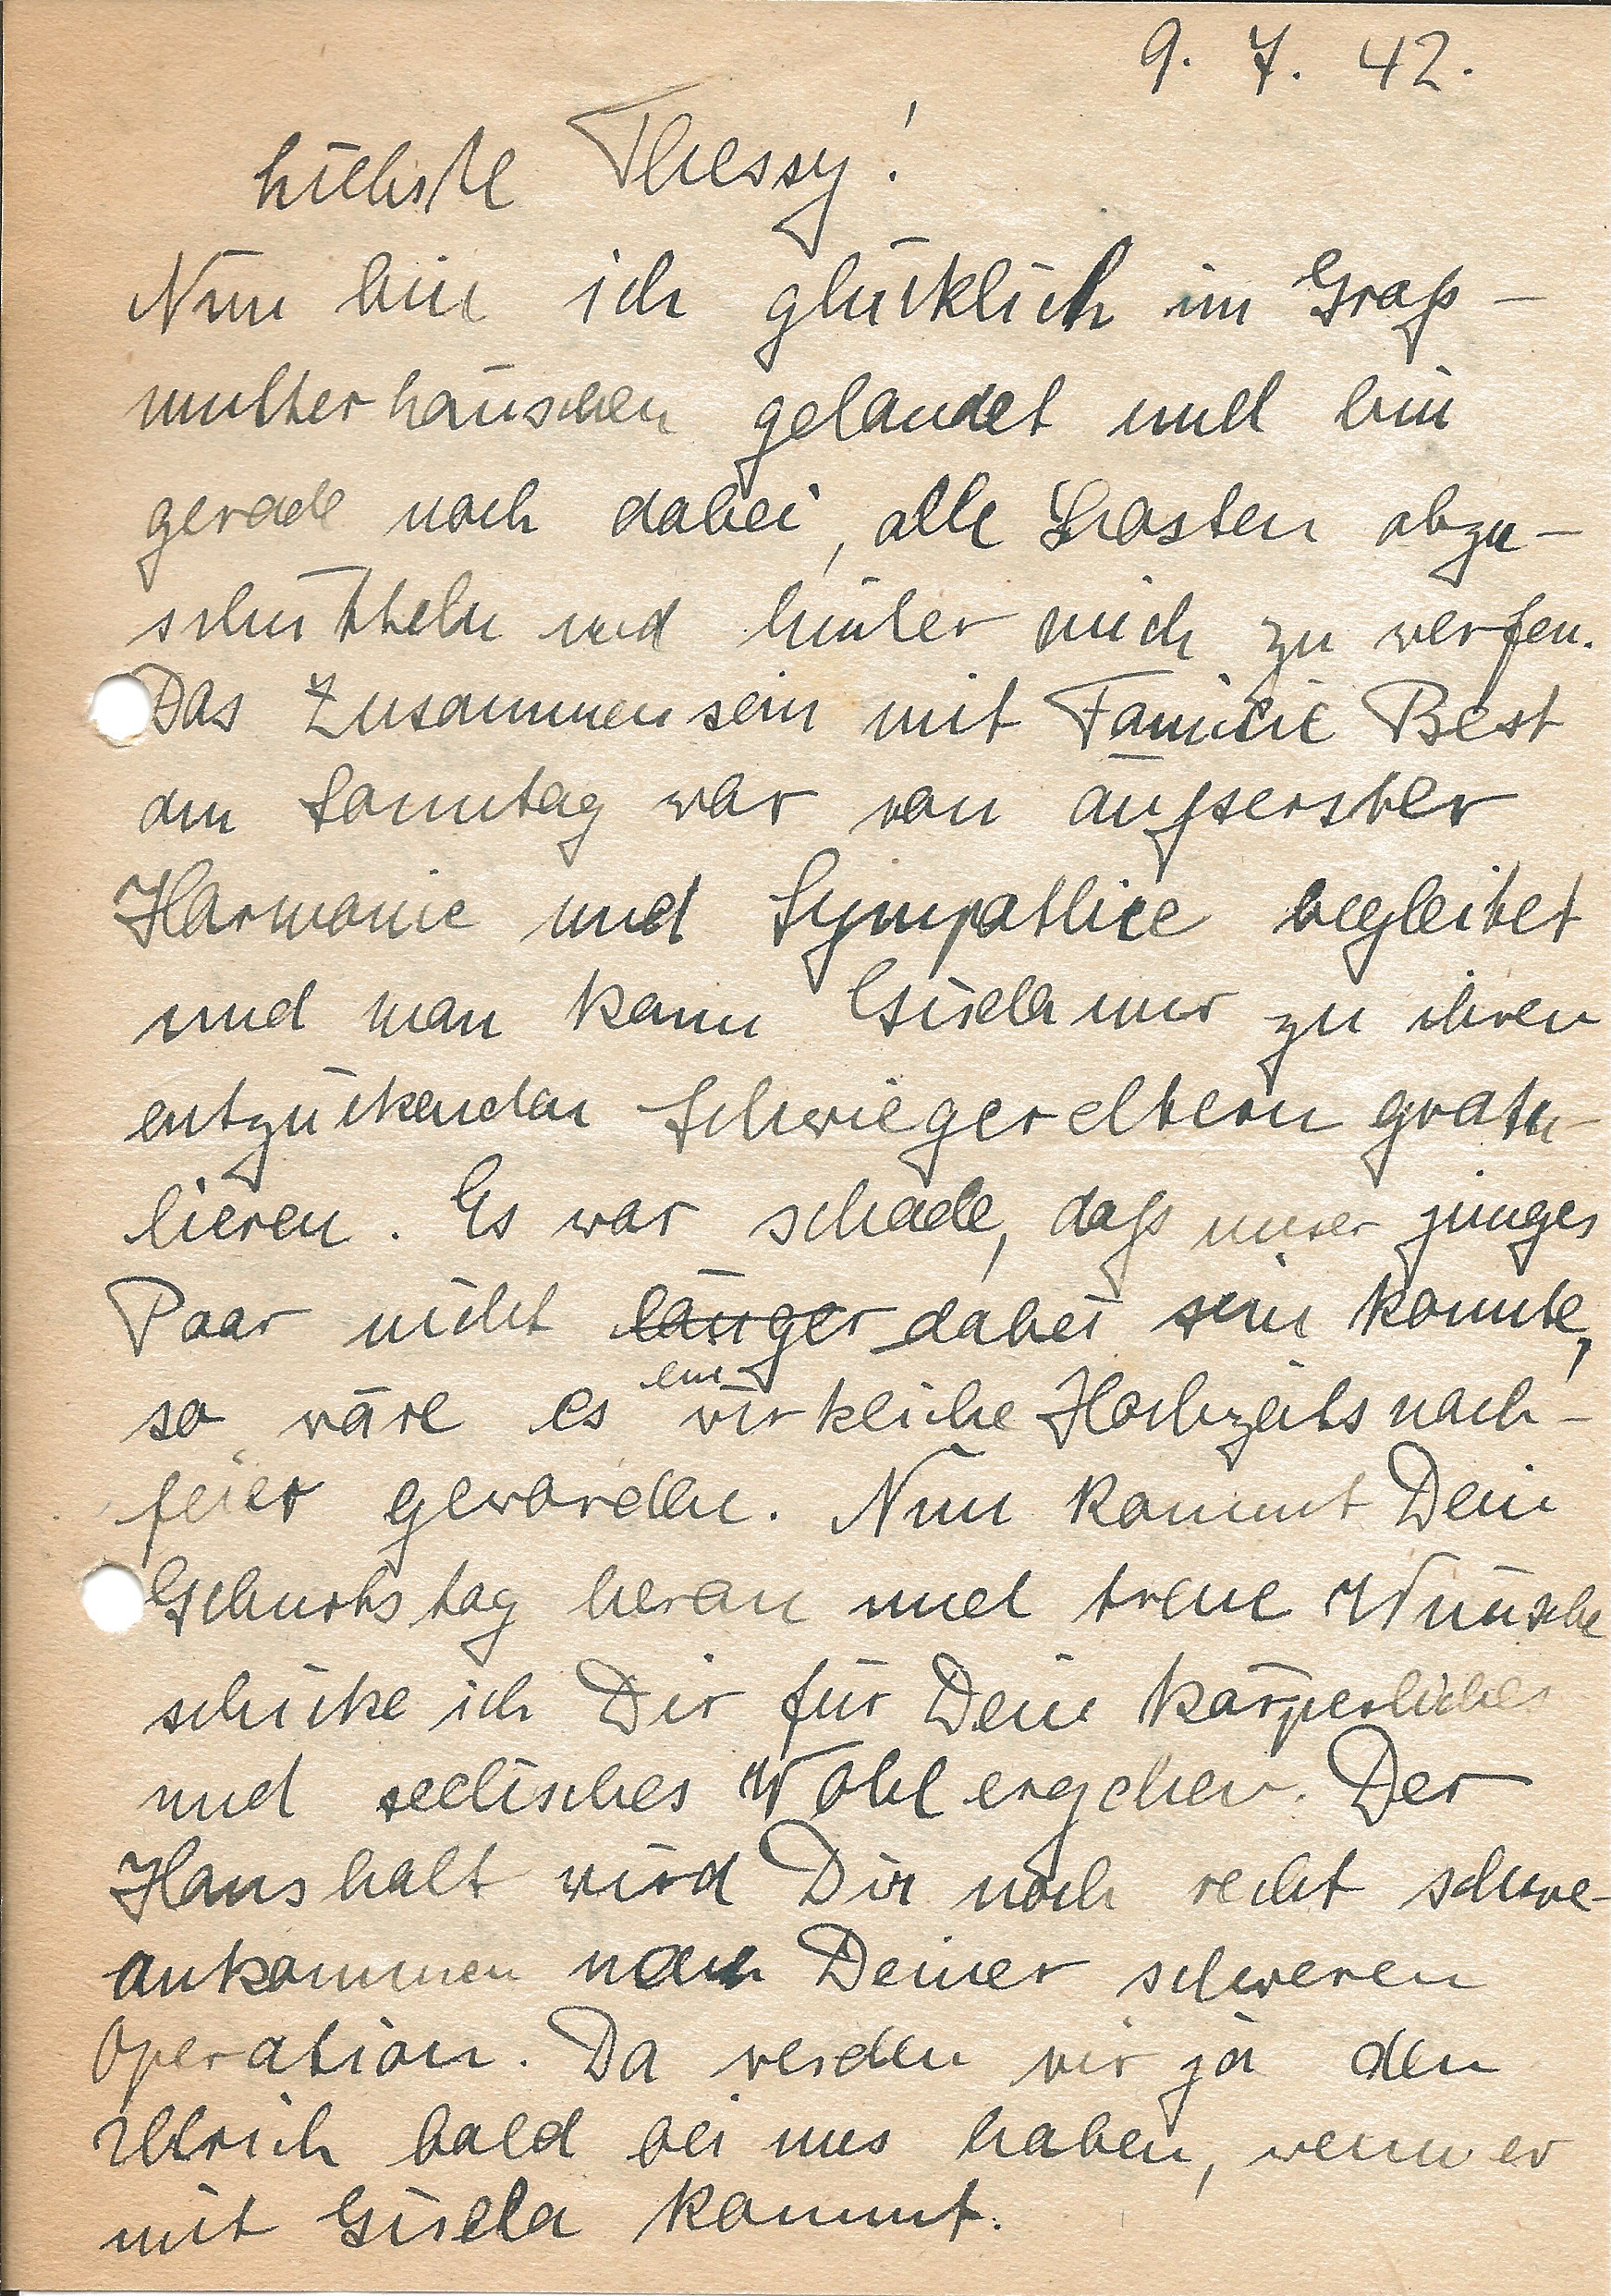 9. 7. 42.
Liebste Thessy!
Nun bin ich glücklich im Groß-
mutterhäuschen gelandet und bin
gerade noch dabei, alle Lasten abzu-
schütteln und hinter mich zu werfen.
Das Zusammensein mit Familie Best
am Sonntag war von äußerster
Harmonie und Sympathie begleitet
und man kann Gisela nur zu ihren
entzückenden Schwiegereltern gratu-
lieren. Es war schade, daß unser junges
Paar nicht länger dabei sein konnte,
so wäre es eine wirkliche Hochzeitsnach-
feier geworden. Nun kommt Dein
Geburtstag heran und treue Wünsche
schicke ich Dir für Dein körperliches
und seelisches Wohlergehen. Der
Haushalt wird Dir noch recht schwe-
ankommen nach Deiner schweren
Operation. Da werden wir ja den
Ullrich bald bei uns haben, wenn er
mit Gisela kommt.